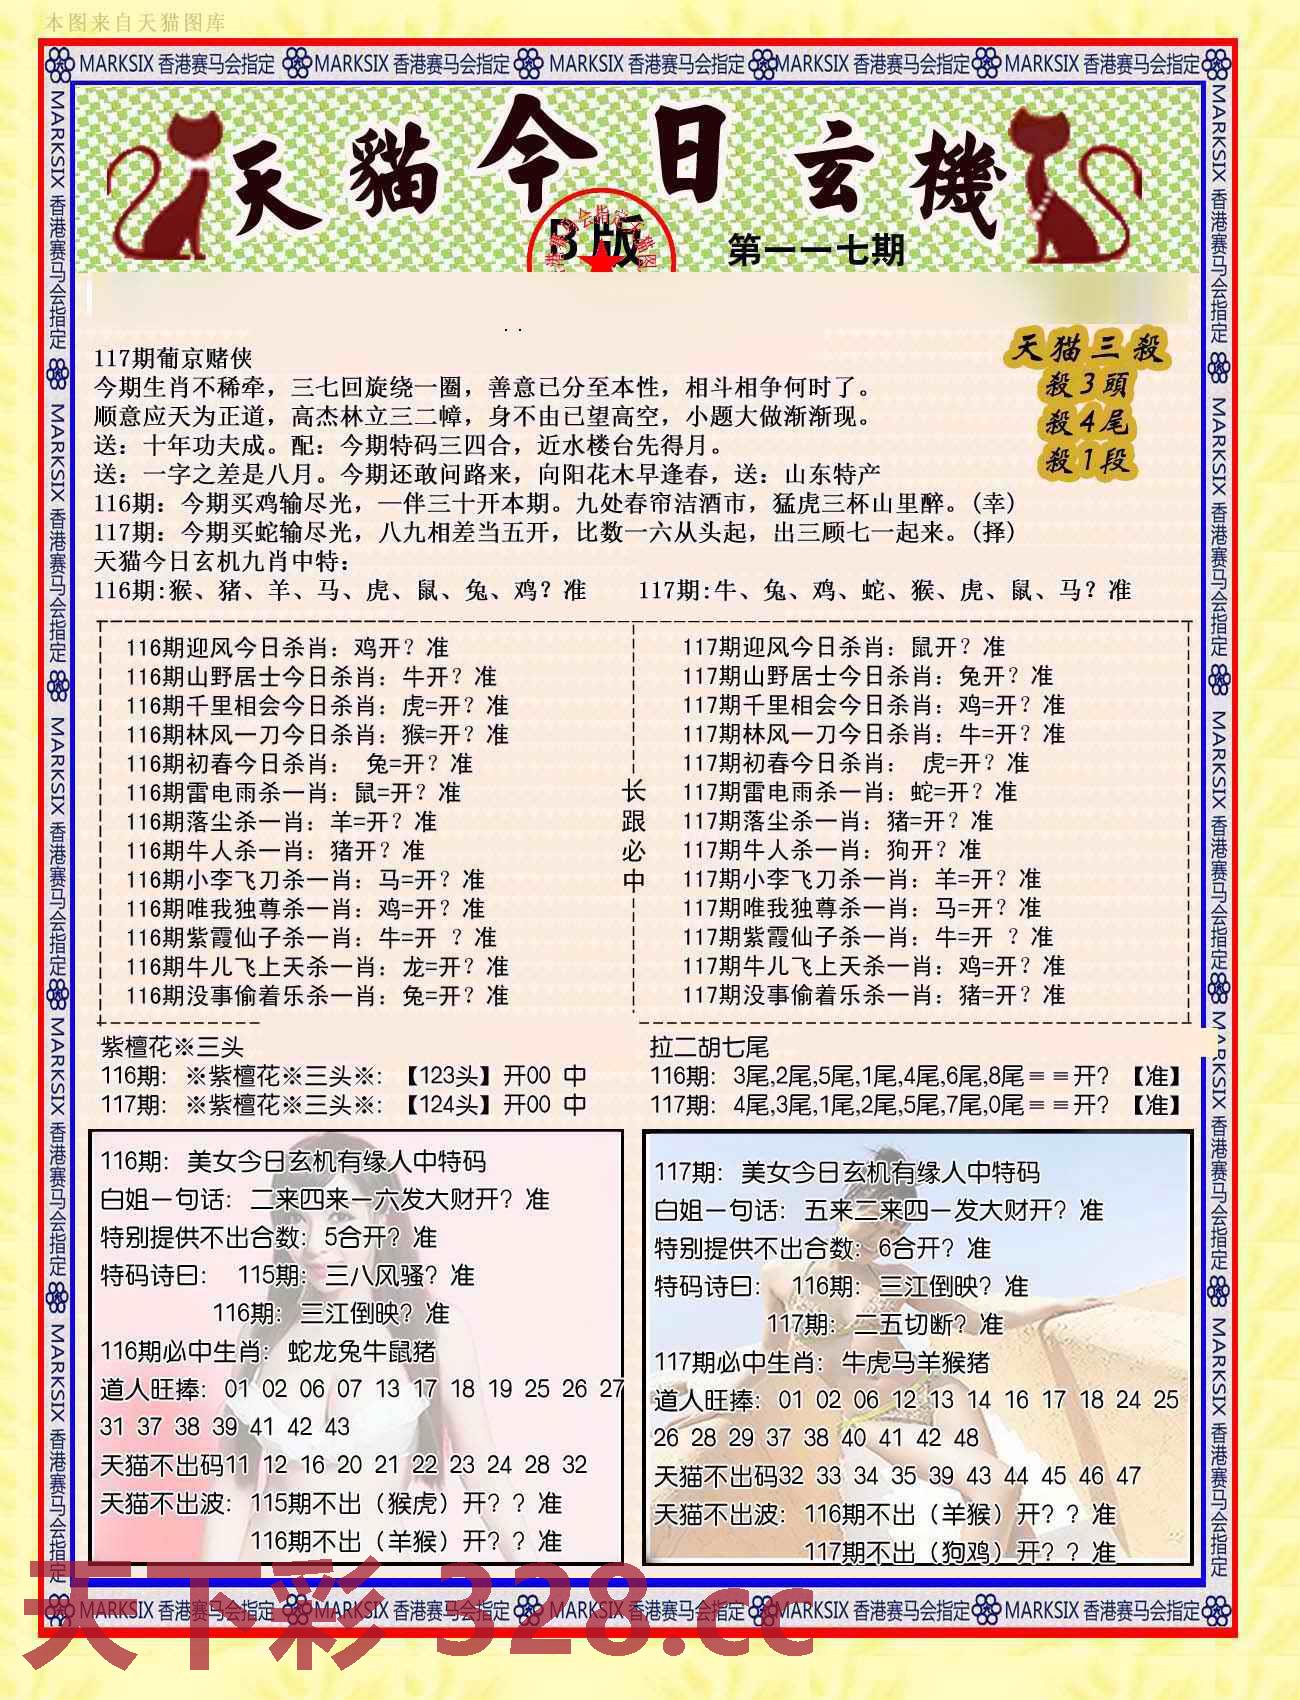 本图来自天猫图库
MARKSIX 香港赛马会指定 MARKSIX 香港赛马会指定 MARKSIX 香港赛马会指定 MARKSIX 香港赛马会指定 MARKSIX 香港赛马会指定
天貓今日玄機
B版
第一一七期
天猫三殺
殺3頭
殺4尾
殺1段
117期葡京赌侠
今期生肖不稀牵，三七回旋绕一圈，善意已分至本性，相斗相争何时了。
顺意应天为正道，高杰林立三二幛，身不由已望高空，小题大做渐渐现。
送：十年功夫成。配：今期特码三四合，近水楼台先得月。
送：一字之差是八月。今期还敢问路来，向阳花木早逢春，送：山东特产
116期：今期买鸡输尽光，一伴三十开本期。九处春帘洁酒市，猛虎三杯山里醉。(幸)
117期：今期买蛇输尽光，八九相差当五开，比数一六从头起，出三顾七一起来。(择)
天猫今日玄机九肖中特：
116期:猴、猪、羊、马、虎、鼠、兔、鸡？准 117期:牛、兔、鸡、蛇、猴、虎、鼠、马？准
116期迎风今日杀肖：鸡开？准
116期山野居士今日杀肖：牛开？准
116期千里相会今日杀肖：虎=开？准
116期林风一刀今日杀肖：猴=开？准
116期初春今日杀肖： 兔=开？准
116期雷电雨杀一肖：鼠=开？准
116期落尘杀一肖：羊=开？准
116期牛人杀一肖：猪开？准
116期小李飞刀杀一肖：马=开？准
116期唯我独尊杀一肖：鸡=开？准
116期紫霞仙子杀一肖：牛=开 ？准
116期牛儿飞上天杀一肖：龙=开？准
116期没事偷着乐杀一肖：兔=开？准
长
跟
必
中
117期迎风今日杀肖：鼠开？准
117期山野居士今日杀肖：兔开？准
117期千里相会今日杀肖：鸡=开？准
117期林风一刀今日杀肖：牛=开？准
117期初春今日杀肖： 虎=开？准
117期雷电雨杀一肖：蛇=开？准
117期落尘杀一肖：猪=开？准
117期牛人杀一肖：狗开？准
117期小李飞刀杀一肖：羊=开？准
117期唯我独尊杀一肖：马=开？准
117期紫霞仙子杀一肖：牛=开 ？准
117期牛儿飞上天杀一肖：鸡=开？准
117期没事偷着乐杀一肖：猪=开？准
紫檀花※三头
116期: ※紫檀花※三头※: 【123头】开00 中
117期: ※紫檀花※三头※: 【124头】开00 中
拉二胡七尾
116期: 3尾,2尾,5尾,1尾,4尾,6尾,8尾==开? 【准】
117期: 4尾,3尾,1尾,2尾,5尾,7尾,0尾==开? 【准】
116期: 美女今日玄机有缘人中特码
白姐一句话: 二来四来一六发大财开? 准
特别提供不出合数: 5合开? 准
特码诗曰: 115期: 三八风骚? 准
116期: 三江倒映? 准
116期必中生肖: 蛇龙兔牛鼠猪
道人旺捧: 01 02 06 07 13 17 18 19 25 26 27
31 37 38 39 41 42 43
天猫不出码11 12 16 20 21 22 23 24 28 32
天猫不出波: 115期不出（猴虎）开? ? 准
116期不出（羊猴）开? ? 准
117期: 美女今日玄机有缘人中特码
白姐一句话: 五来二来四一发大财开? 准
特别提供不出合数: 6合开? 准
特码诗曰: 116期: 三江倒映? 准
117期: 二五切断? 准
117期必中生肖: 牛虎马羊猴猪
道人旺捧: 01 02 06 12 13 14 16 17 18 24 25
26 28 29 37 38 40 41 42 48
天猫不出码32 33 34 35 39 43 44 45 46 47
天猫不出波: 116期不出（羊猴）开? ? 准
117期不出（狗鸡）开? ? 准
MARKSIX 香港赛马会指定 MARKSIX 香港赛马会指定 MARKSIX 香港赛马会指定 MARKSIX 香港赛马会指定 MARKSIX 香港赛马会指定
天下彩 328.cc